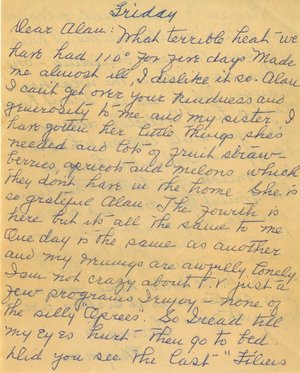 Friday
Dear Alan: What terrible heat - we
have had 110° for five days. Made
me almost ill, I dislike it so. Alan
I can't get over your kindness and
generosity to me and my sister. I
have gotten her little things she's
needed and lots of fruit straw-
berries apricots and melons which
they don't have in the home. She is
so grateful Alan. The fourth is
here but its all the same to me
One day is the same as another
and my evenings are awfully lonely
I am not crazy about T.V. just a
few programs I enjoy - none of
the silly ones". So I read till
my eyes hurt - then go to bed.
Did you see the last "